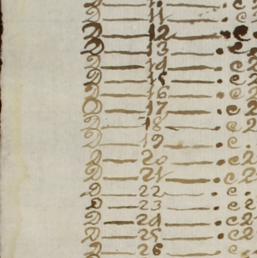 2 — 11 — . c 2
2 — 12 — . c
2 — 13 — . c 2
2 — 14 — . c 2
2 — 15 — . c 2
2 — 16 — . c 2
2 — 17 — . c 2
2 — 18 — . c 2
2 — 19 — . c
2 — 20 — . c 2
2 — 21 — . c 2
2 — 22 — . c
2 — 23 — . c
2 — 24 — . c 2
2 — 25 — . c 2
2 — 26 — . c 2